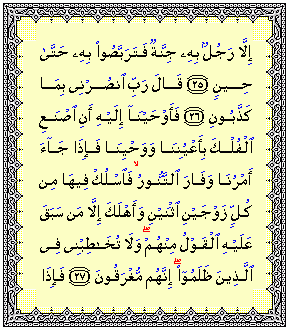 إِلَّا رَجُلٌۢ بِهِۦ جِنَّةٌ فَتَرَبَّصُوا۟ بِهِۦ حَتَّىٰ
حِينٍ ﴿٢٥﴾ قَالَ رَبِّ ٱنصُرْنِى بِمَا
كَذَّبُونِ ﴿٢٦﴾ فَأَوْحَيْنَآ إِلَيْهِ أَنِ ٱصْنَعِ
ٱلْفُلْكَ بِأَعْيُنِنَا وَوَحْيِنَا فَإِذَا جَآءَ
أَمْرُنَا وَفَارَ ٱلتَّنُّورُ ۙ فَٱسْلُكْ فِيهَا مِن
كُلٍّ زَوْجَيْنِ ٱثْنَيْنِ وَأَهْلَكَ إِلَّا مَن سَبَقَ
عَلَيْهِ ٱلْقَوْلُ مِنْهُمْ ۖ وَلَا تُخَـٰطِبْنِى فِى
ٱلَّذِينَ ظَلَمُوٓا۟ ۖ إِنَّهُم مُّغْرَقُونَ ﴿٢٧﴾ فَإِذَا